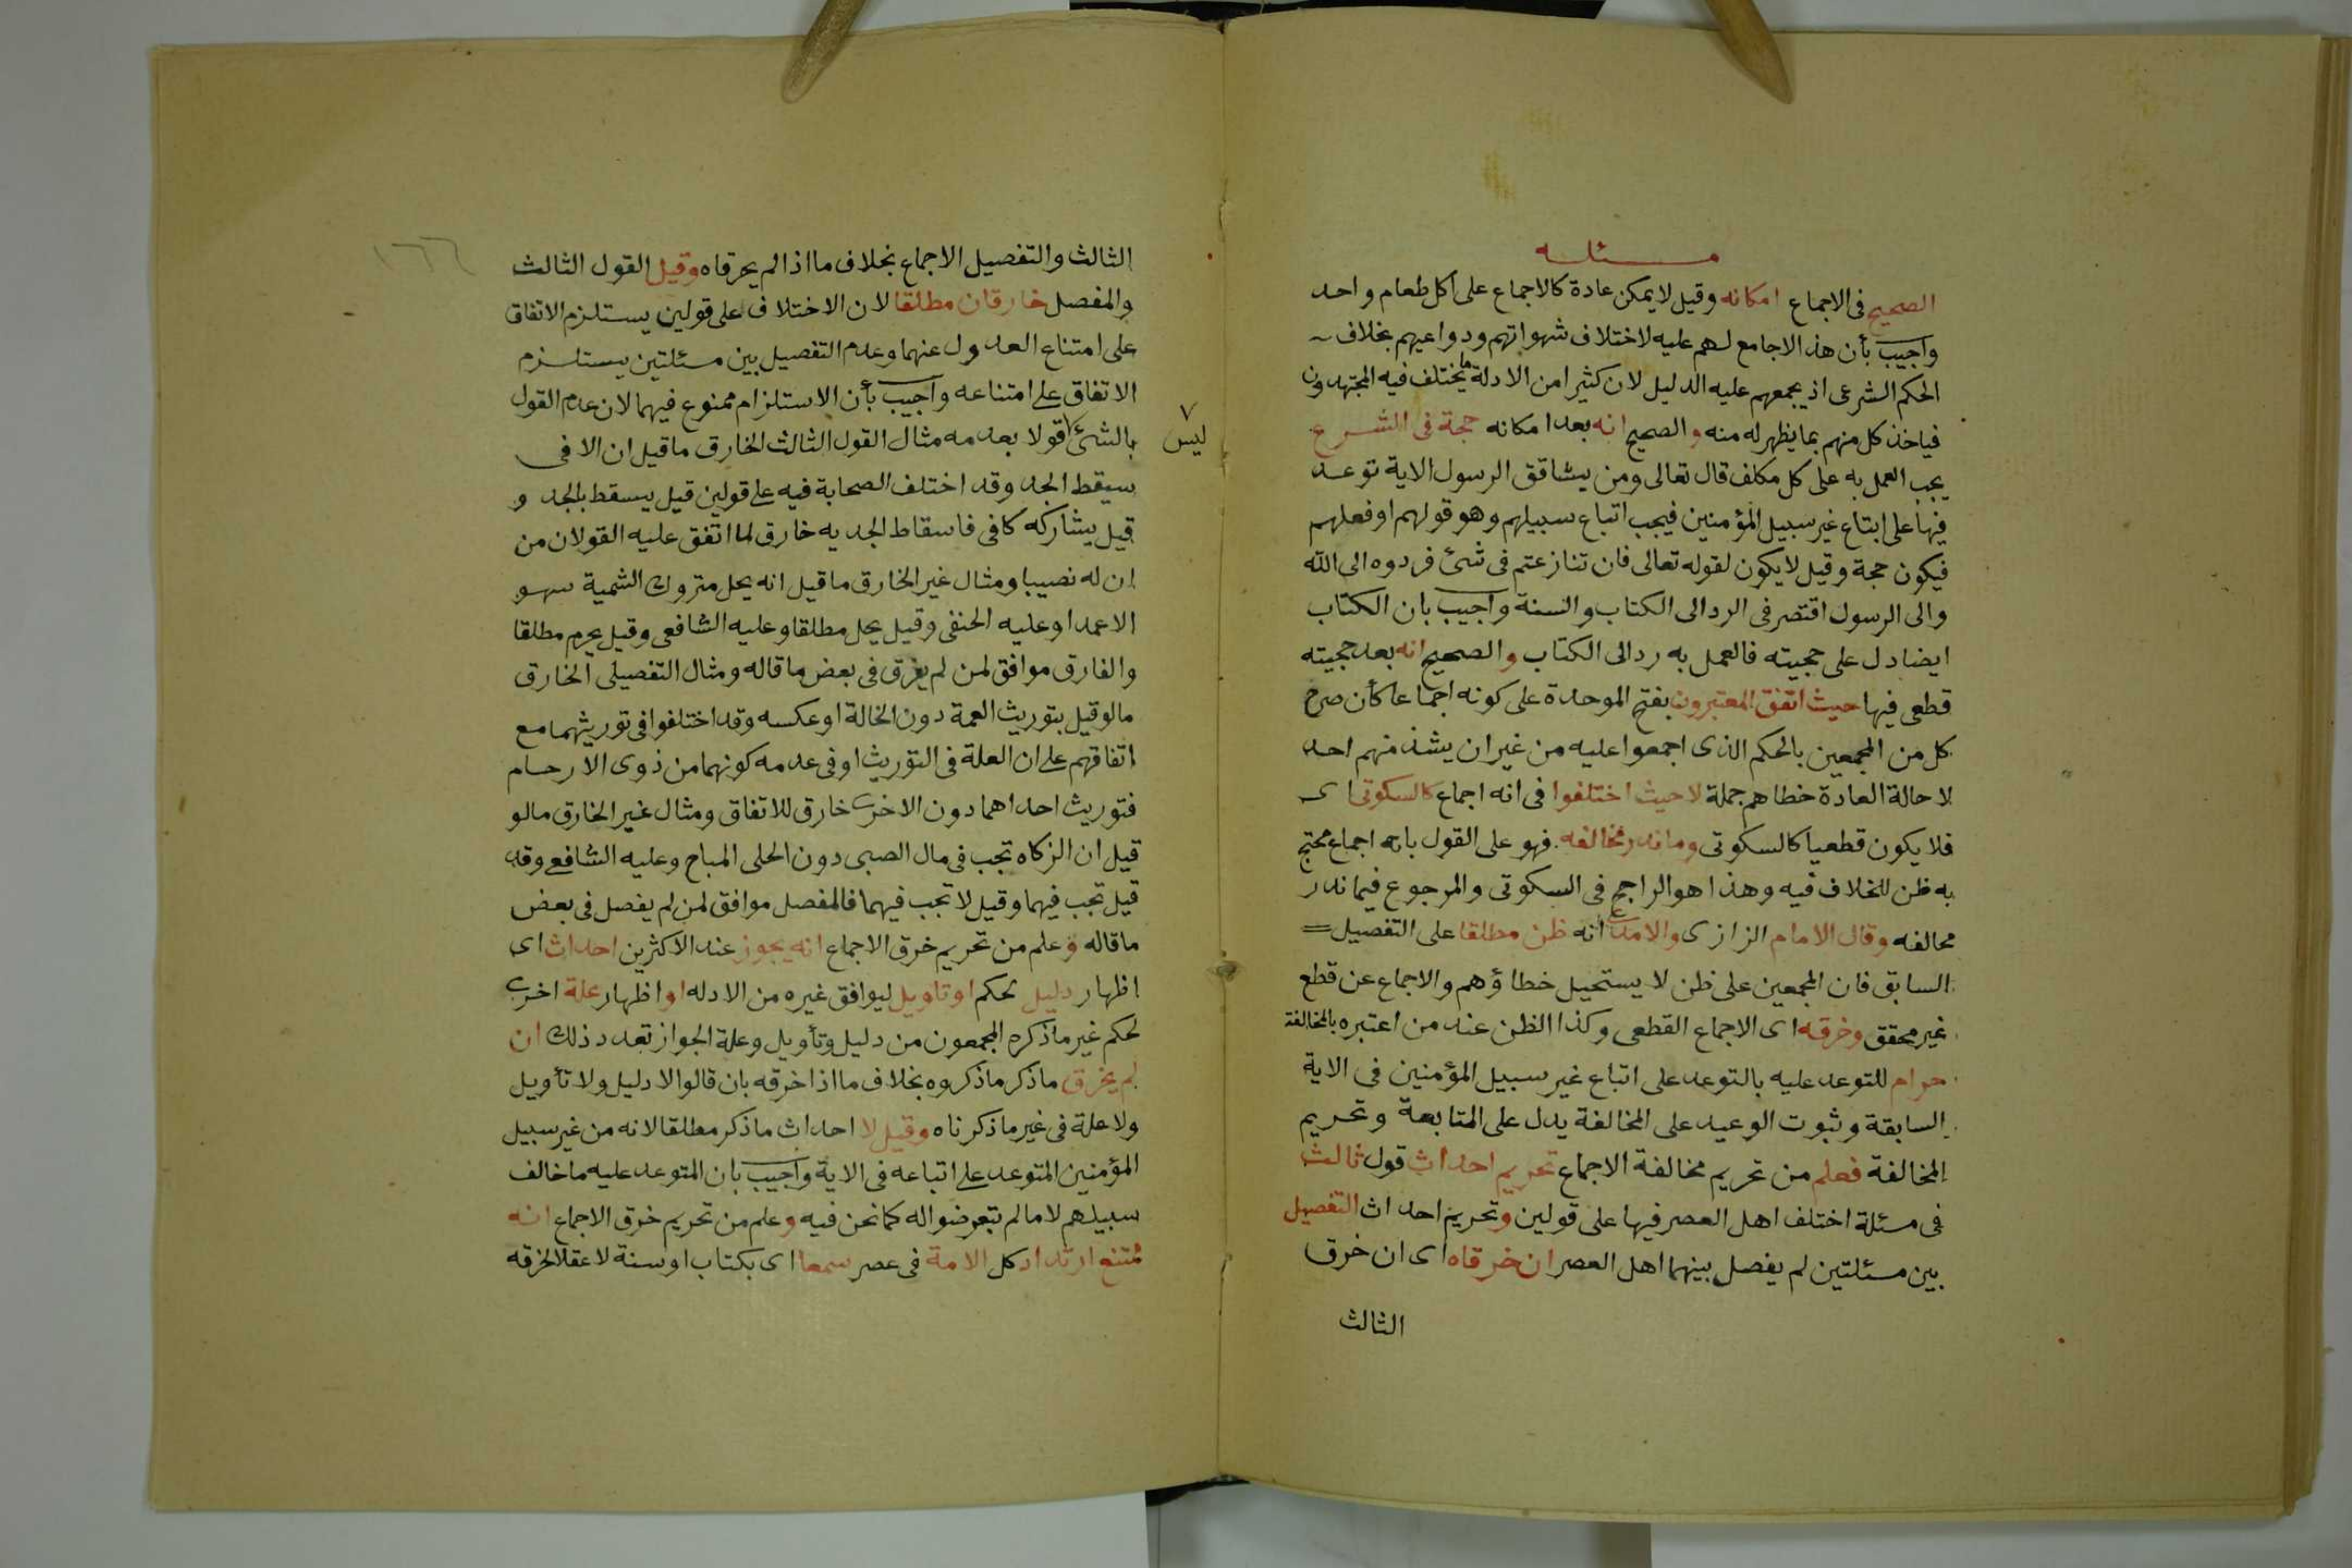 مسئله
الصحيح فى الاجماع امكانه وقيل لا يمكن عادة كالاجماع على اكل طعام واحد
واجيب بأن هذا لاجامع لهم عليه لاختلاف شهواتهم ودواعيهم بخلاف
الحكم الشرعى اذ يجمعهم عليه الدليل لان كثيرا من الادلة ما يختلف فيه المجتهدون
فياخذ كل منهم بما يظهر له منه والصحيح انه بعد امكانه حجة فى الشرع
يجب العمل به على كل مكلف قال تعالى ومن يشاقق الرسول الاية توعد
فيها على ابتاع غير سبيل المؤمنين فيجب اتباع سبيلهم وهو قولهم او فعلهم
فيكون حجة وقيل لا يكون لقوله تعالى فان تنازعتم فى شئ فردوه الى الله
والى الرسول اقتصر فى الرد الى الكتاب والسنة واجيب بان الكتاب
ايضا دل على حجيته فالعمل به رد الى الكتاب والصحيح انه بعد حجيته
قطعى فيها حيث اتفق المعتبرون بفتح الموحدة على كونه اجماعا كأن صرح
كل من المجمعين بالحكم الذى اجمعوا عليه من غير ان يشذ منهم احد
لا حالة العادة خطاهم جملة لا حيث اختلفوا فى انه اجماع كالسكوتى اى
فلا يكون قطعيا كالسكوتى وما ندر مخالفه فهو على القول بانه اجماع محتج
به ظن للخلاف فيه وهذا هو الراجح فى السكوتى والمرجوع فيما ندر
مخالفه وقال الامام الرازى والامدى انه ظن مطلقا على التفصيل
السابق فان المجمعين على ظن لا يستحيل خطاؤهم والاجماع عن قطع
غير محقق وخرقه اى الاجماع القطعى وكذا الظن عند من اعتبره بالمخالفة
حرام للتوعد عليه بالتوعد على اتباع غير سبيل المؤمنين فى الاية
السابقة وثبوت الوعيد على المخالفة يدل على المتابعة وتحريم
المخالفة فعلم من تحريم مخالفة الاجماع تحريم احداث قول ثالث
فى مسئلة اختلف اهل العصر فيها على قولين وتحريم احداث التفصيل
بين مسئلتين لم يفصل بينهما اهل العصر ان خرقاه اى ان خرق
الثالث
١٦٦
الثالث والتفصيل الاجماع بخلاف ما اذا لم يخرقاه وقيل القول الثالث
والمفصل خارقان مطلقا لان الاختلاف على قولين يستلزم الاتفاق
على امتناع العدول عنهما وعدم التفصيل بين مسئلتين يستلزم
الاتفاق على امتناعه واجيب بأن الاستلزام ممنوع فيهما لان عدم القول
بالشئ قولا بعدمه مثال القول الثالث الخارق ما قيل ان الا فى
٧ ليس
سيقط الجد وقد اختلف الصحابة فيه على قولين قيل يسقط بالجد و
قيل يشاركه كافى فاسقاط الجد به خارق لما اتفق عليه القولان من
ان له نصيبا ومثال غير الخارق ما قيل انه يحل متروك الشمية سهو
الاعمدا وعليه الحنفى وقيل يحل مطلقا وعليه الشافعى وقيل يحرم مطلقا
والفارق موافق لمن لم يفرق فى بعض ما قاله ومثال التفصيلى الخارق
ما لو قيل بتوريث العمة دون الخالة او عكسه وقد اختلفوا فى توريثهما مع
اتفاقهم على ان العلة فى التوريث او فى عدمه كونهما من ذوى الارحام
فتوريث احداهما دون الاخرى خارق للاتفاق ومثال غير الخارق ما لو
قيل ان الزكاه تجب فى مال الصبى دون الحلى المباح وعليه الشافعى وقد
قيل تجب فيهما وقيل لا تجب فيهما فالمفصل موافق لمن لم يفصل فى بعض
ما قاله وعلم من تحريم خرق الاجماع انه يجوز عند الاكثرين احداث اى
اظهار دليل لحكم او تاويل ليوافق غيره من الادله او اظهار علة اخرى
لحكم غير ما ذكره المجمعون من دليل وتأويل وعلة الجواز تعدد ذلك ان
لم يخرق ما ذكر ما ذكروه بخلاف ما اذا خرقه بان قالوا لا دليل ولا تأويل
ولا علة فى غير ما ذكرناه وقيل لا احداث ما ذكر مطلقا لانه من غير سبيل
المؤمنين المتوعد على اتباعه فى الاية واجيب بان المتوعد عليه ما خالف
سبيلهم لا ما لم يتعرضوا له كما نحن فيه وعلم من تحريم خرق الاجماع انه
يمتنع ارتداد كل الامة فى عصر سمعا اى بكتاب او سنة لا عقلا لخرقه